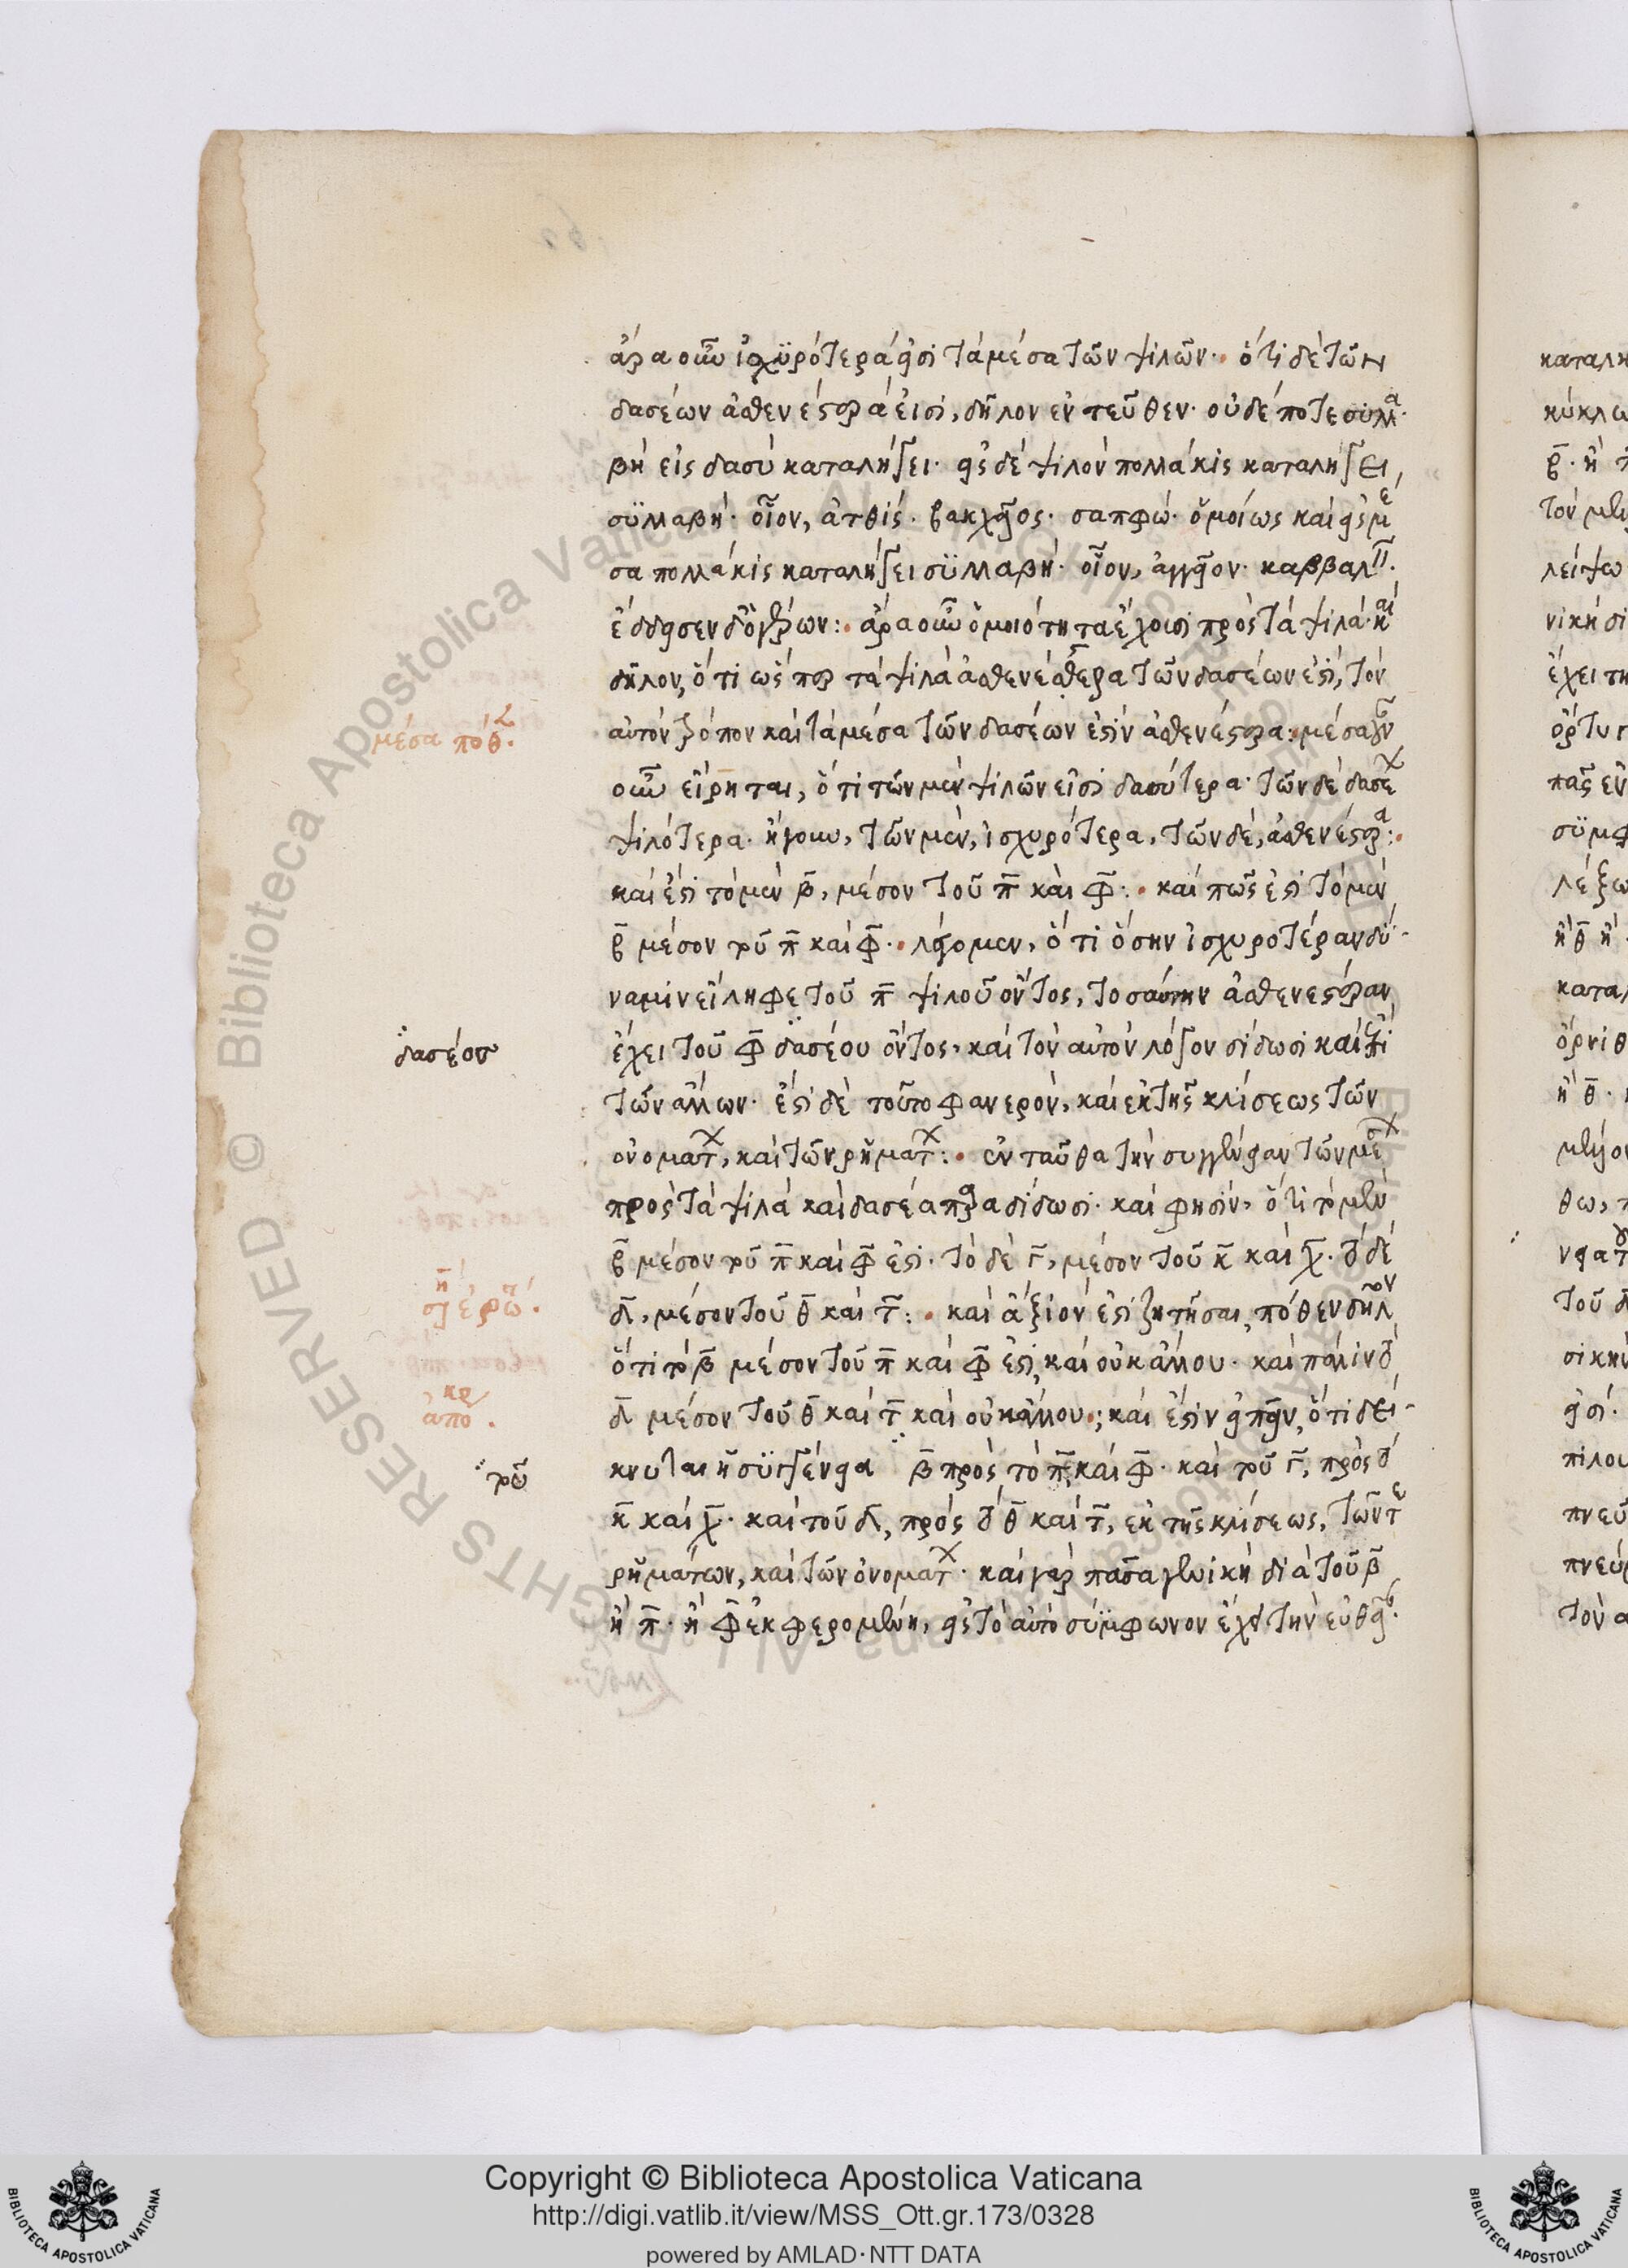 ἄρα οὖν ἰσχϋρότερά εἰσι τὰ μέσα τῶν ψιλῶν· ὅτι δὲ τῶν
δασέων ἀσθενέστερά εἰσι, δῆλον ἐντεῦθεν· οὐδέποτε συλλα
βὴ εἰς δασὺ καταλήγει· εἰς δὲ ψιλὸν πολλάκις καταλήγει,
σϋλλαβή· οἷον, ἀτθίς· βακχεῖος· σαπφώ· ὁμοίως καὶ εἰς μέ
σα πολλάκις καταλήγει σϋλλαβή· οἷον, ἀγγεῖον· κάββαλεν·
ἔδδεισεν δ' ὁ γέρων: ἄρα οὖν ὁμοιότητα ἔχουσι πρὸς τὰ ψιλά· καὶ
δῆλον, ὅτι ὥσπερ τὰ ψιλὰ ἀσθενέστερα τῶν δασέων ἐστί, τὸν
αὐτὸν τρόπον καὶ τὰ μέσα τῶν δασέων ἐστὶν ἀσθενέστερα: μέσα γοῦν
οὖν εἴρηται, ὅτι τῶν μὲν ψιλῶν εἰσι δασύτερα· τῶν δὲ δασέων
ψιλότερα· ἤγουν, τῶν μὲν, ἰσχυρότερα, τῶν δὲ, ἀσθενέστερα:
καὶ ἔστι τὸ μὲν β, μέσον τοῦ π καὶ φ: καὶ πῶς ἐστι τὸ μὲν
β μέσον τοῦ π καὶ φ· λέγομεν, ὅτι ὅσην ἰσχυροτέραν δύ-
ναμιν εἴληφε τοῦ π ψιλοῦ ὄντος, τοσαύτην ἀσθενεστέραν
ἔχει τοῦ φ δασέου ὄντος, καὶ τὸν αὐτὸν λόγον δίδωσι καὶ ἐπὶ
τῶν ἄλλων· ἔστι δὲ τοῦτο φανερὸν, καὶ ἐκ τῆς κλίσεως τῶν
ὀνομάτων, καὶ τῶν ῥημάτων: ἐνταῦθα τὴν συγγένειαν τῶν μέσων
πρὸς τὰ ψιλὰ καὶ δασέα παραδίδωσι· καὶ φησὶν, ὅτι τὸ μὲν
β μέσον τοῦ π καὶ φ ἐστι· τὸ δὲ γ, μέσον τοῦ κ καὶ χ· τὸ δὲ
δ, μέσον τοῦ θ καὶ τ: καὶ ἄξιόν ἐστι ζητῆσαι, πόθεν δῆλον
ὅτι τὸ β μέσον τοῦ π καὶ φ ἐστι, καὶ οὐκ ἄλλου· καὶ πάλιν τὸ
δ μέσον τοῦ θ καὶ τ καὶ οὐκ ἄλλου; καὶ ἔστιν εἰπεῖν, ὅτι δεί-
κνυται ἡ σϋγγένεια β πρὸς τὸ π, καὶ φ· καὶ τοῦ γ, πρὸς τὸ
κ καὶ χ· καὶ τοῦ δ, πρὸς τὸ θ καὶ τ, ἐκ τῆς κλίσεως, τῶν τε
ῥημάτων, καὶ τῶν ὀνομάτων· καὶ γὰρ πᾶσα γενικὴ διὰ τοῦ β
ἢ π· ἢ φ ἐκφερομένη, εἰς τὸ αὐτὸ σύμφωνον ἔχει τὴν εὐθεῖαν·
μέσα πόθ.
δασέος
ση ἐρώ.
ἀπο κρ.
τοῦ
Copyright © Biblioteca Apostolica Vaticana
http://digi.vatlib.it/view/MSS_Ott.gr.173/0328
powered by AMLAD·NTT DATA